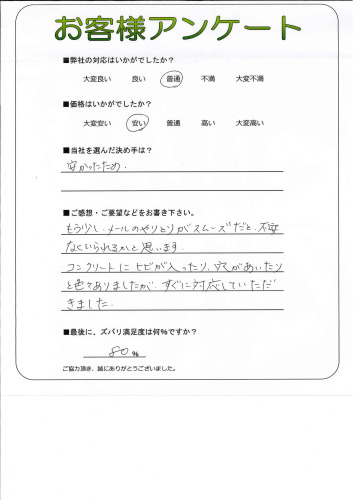 お客様アンケート
■弊社の対応はいかがでしたか？
大変良い 良い 普通 不満 大変不満
■価格はいかがでしたか？
大変安い 安い 普通 高い 大変高い
■当社を選んだ決め手は？
安かったため.
■ご感想・ご要望などをお書き下さい。
もう少し、メールのやりとりがスムーズだと、不安
なくいられるかと思います.
コンクリートにヒビが入ったり、穴があいたり
と色々ありましたが、すぐに対応していただ
きました.
■最後に、ズバリ満足度は何％ですか？
80 %
ご協力頂き、誠にありがとうございました。